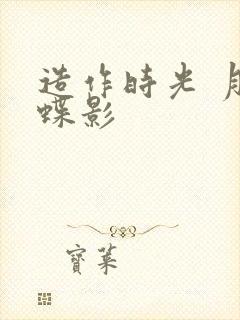 造作時光 月
蝶影
寶萊